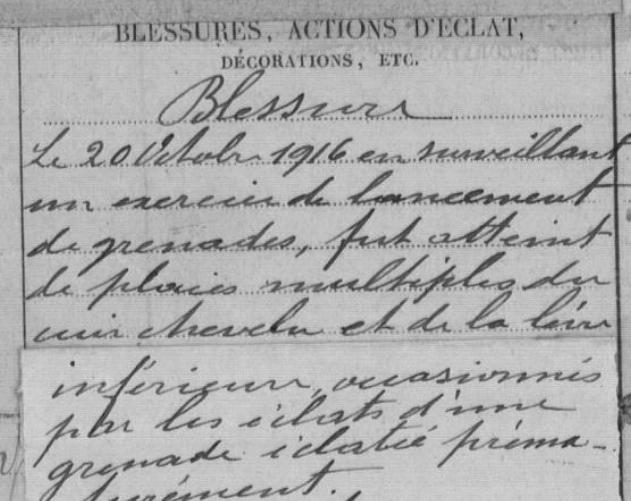 BLESSURES, ACTIONS D'ECLAT,
DÉCORATIONS, ETC.
Blessure
Le 20 Octobre 1916 en surveillant
un exercice de lancement
de grenades, fut atteint
de plaies multiples du
cuir chevelu et de la lèvre
inférieure, occasionnés
par les éclats d'une
grenade éclatée préma-
turément.